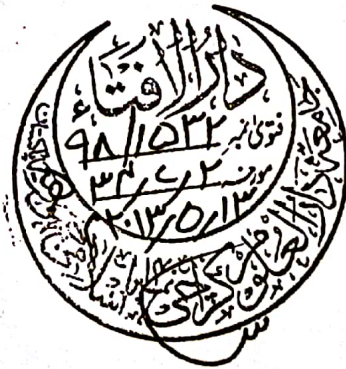 دارالافتاء
فتویٰ نمبر ۹۸/۱۵۳۲
مورخہ ۳۴/۷/۲
۲۰۱۳/۵/۱۳
جامعہ دارالعلوم کراچی